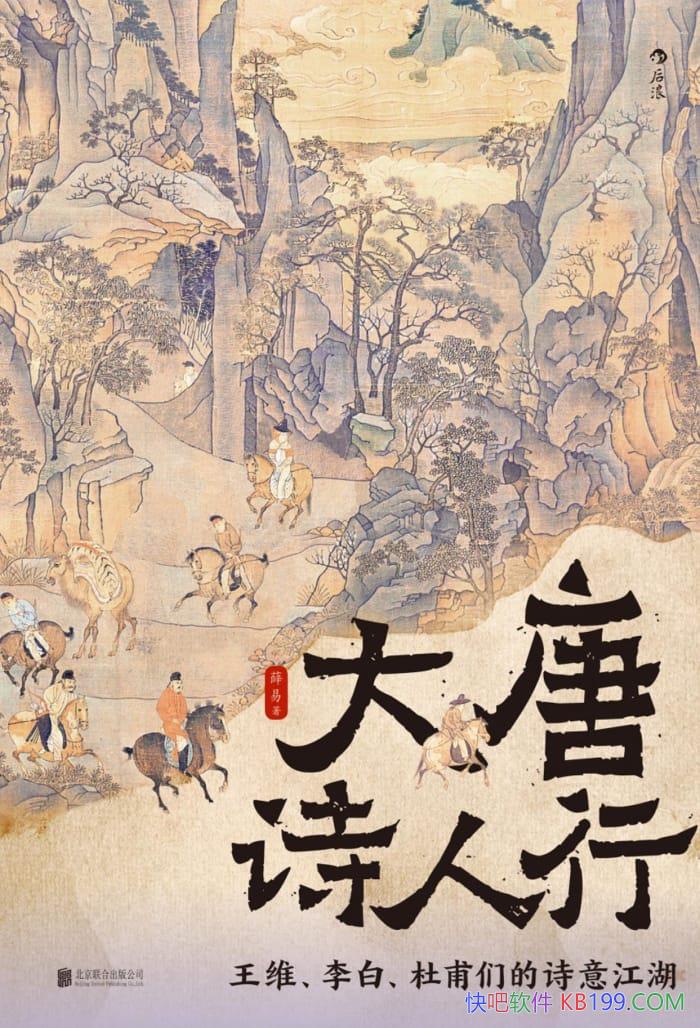 后浪
大唐
诗人行
薛易 著
王维、李白、杜甫们的诗意江湖
北京联合出版公司
Beijing United Publishing Co.,Ltd.
快吧软件 KB199.COM